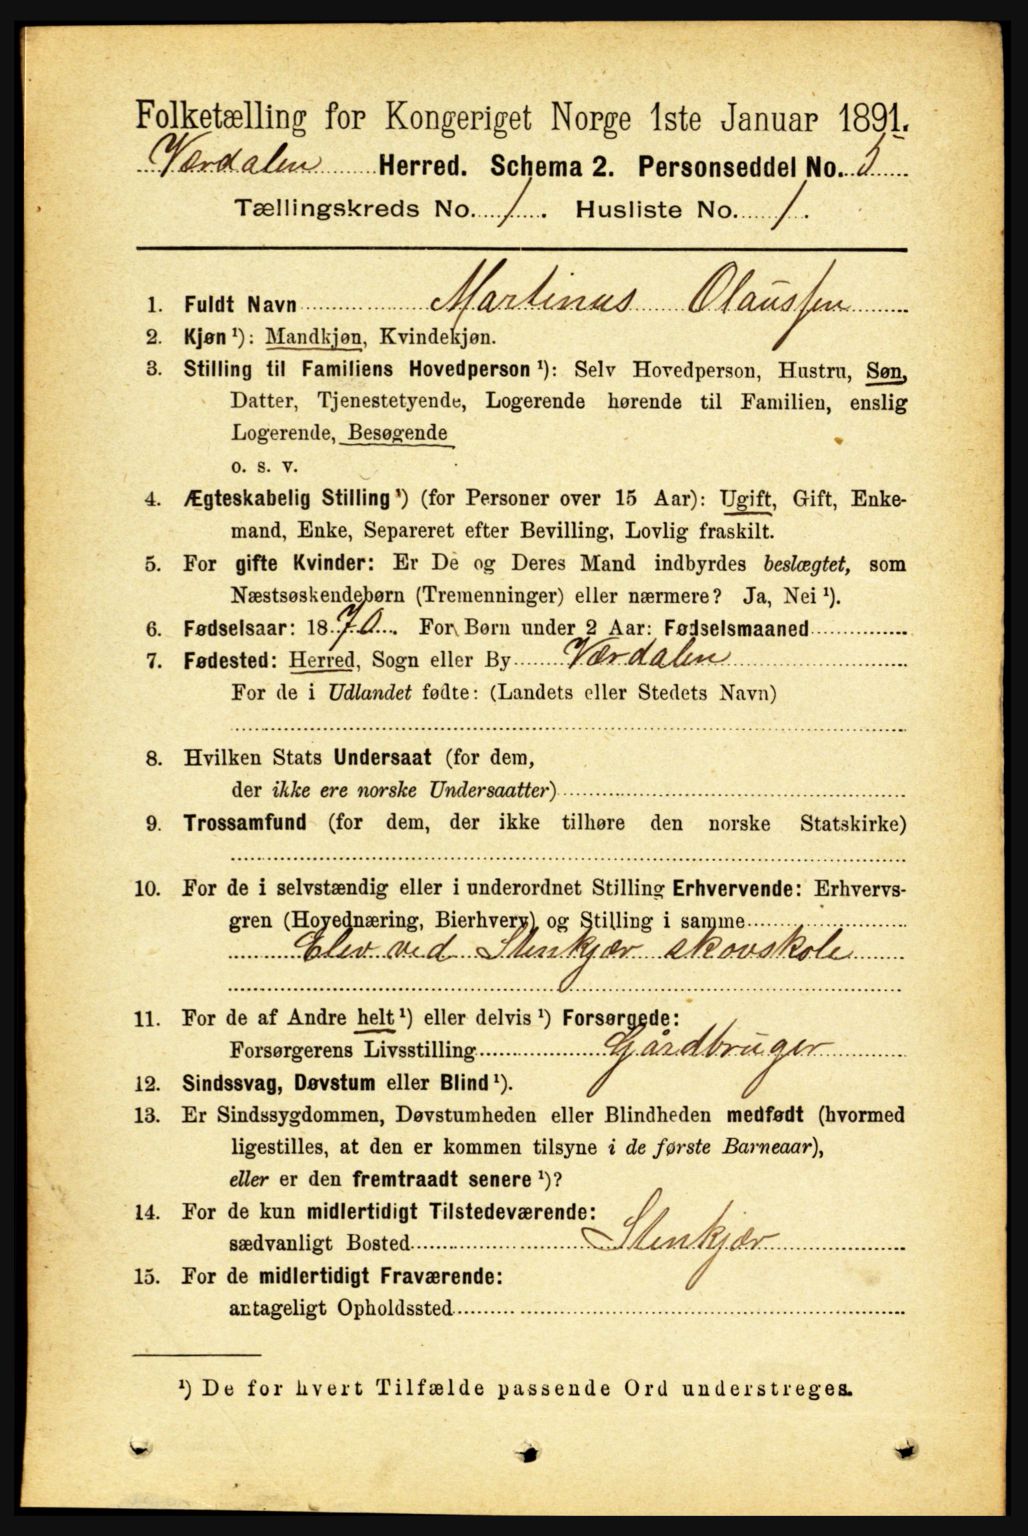 Folketælling for Kongeriget Norge 1ste Januar 1891.
Værdalen Herred. Schema 2. Personseddel No. 5
Tællingskreds No. 1. Husliste No. 1.
1. Fuldt Navn Martinus Olaussen
2. Kjøn ¹): Mandkjøn, Kvindekjøn.
3. Stilling til Familiens Hovedperson ¹): Selv Hovedperson, Hustru, Søn,
Datter, Tjenestetyende, Logerende hørende til Familien, enslig
Logerende, Besøgende
o. s. v.
4. Ægteskabelig Stilling ¹) (for Personer over 15 Aar): Ugift, Gift, Enke-
mand, Enke, Separeret efter Bevilling, Lovlig fraskilt.
5. For gifte Kvinder: Er De og Deres Mand indbyrdes beslægtet, som
Næstsøskendebørn (Tremenninger) eller nærmere? Ja, Nei ¹).
6. Fødselsaar: 1870. For Børn under 2 Aar: Fødselsmaaned
7. Fødested: Herred, Sogn eller By Værdalen
For de i Udlandet fødte: (Landets eller Stedets Navn)
8. Hvilken Stats Undersaat (for dem,
der ikke ere norske Undersaatter)
9. Trossamfund (for dem, der ikke tilhøre den norske Statskirke)
10. For de i selvstændig eller i underordnet Stilling Erhvervende: Erhvervs-
gren (Hovednæring, Bierhverv) og Stilling i samme
Elev ved Stenkjær skovskole
11. For de af Andre helt ¹) eller delvis ¹) Forsørgede:
Forsørgerens Livsstilling Gårdbruger
12. Sindssvag, Døvstum eller Blind ¹).
13. Er Sindssygdommen, Døvstumheden eller Blindheden medfødt (hvormed
ligestilles, at den er kommen tilsyne i de første Barneaar),
eller er den fremtraadt senere ¹)?
14. For de kun midlertidigt Tilstedeværende:
sædvanligt Bosted Stenkjær
15. For de midlertidigt Fraværende:
antageligt Opholdssted
¹) De for hvert Tilfælde passende Ord understreges.